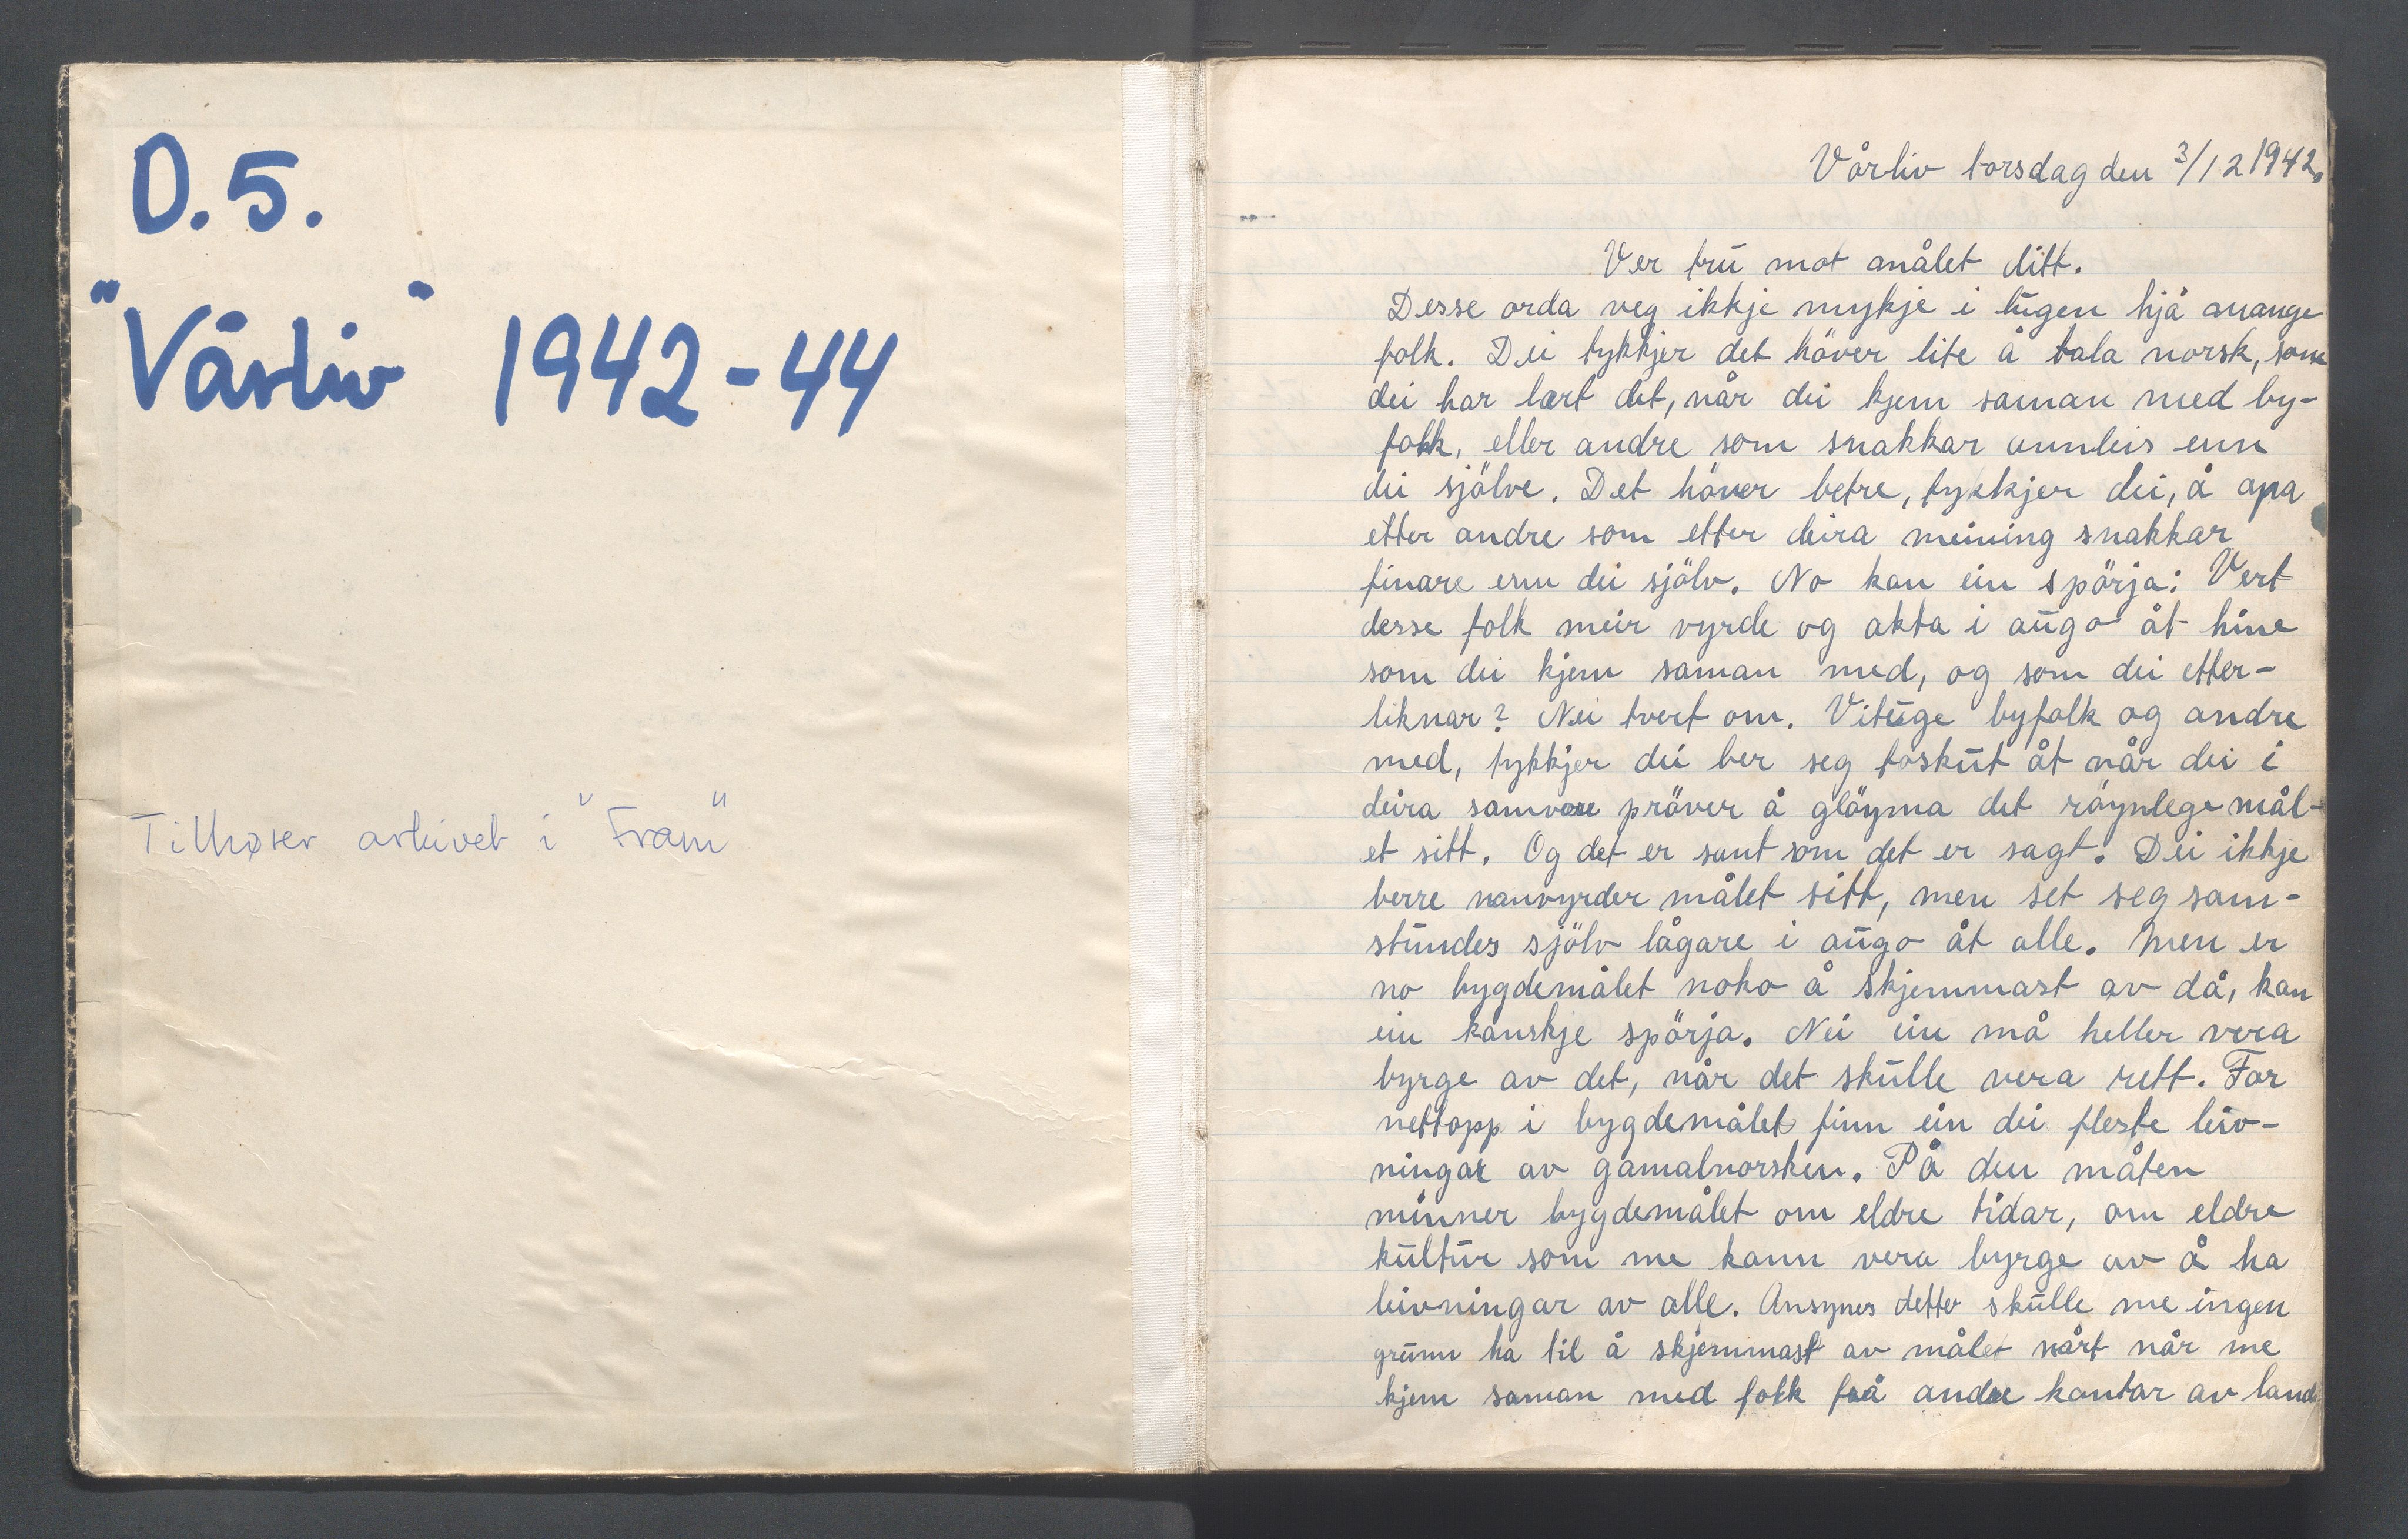 D.5.
"Vårliv" 1942-44
Tilhører arkivet i "Fram"
Vårliv torsdag den 3/12 1942.
Ver tru mot målet ditt.
Desse orda veg ikkje mykje i hugen hjå mange
folk. Dei tykkjer det höver lite å tala norsk, som
dei har lært det, når dei kjem saman med by-
folk, eller andre som snakkar annleis enn
dei sjölve. Det höver betre, tykkjer dei, å apa
etter andre som etter deira meining snakkar
finare enn dei sjölv. No kan ein spörja: Vert
desse folk meir vyrde og akta i augo åt hine
som dei kjem saman med, og som dei etter-
liknar? Nei tvert om. Vituge byfolk og andre
med, tykkjer dei ber seg toskut åt når dei i
deira samvære pröver å glöyma det röynlege mål-
et sitt. Og det er sant som det er sagt. Dei ikkje
berre vanvyrder målet sitt, men set seg sam-
stundes sjölv lågare i augo åt alle. Men er
no bygdemålet noko å skjemmast av då, kan
ein kanskje spörja. Nei ein må heller vera
byrge av det, når det skulle vera rett. For
nettopp i bygdemålet finn ein dei fleste leiv-
ningar av gamalnorsken. På den måten
minner bygdemålet om eldre tidar, om eldre
kultur som me kann vera byrge av å ha
leivningar av alle. Ansynes dette skulle me ingen
grunn ha til å skjemmast av målet vårt når me
kjem saman med folk frå andre kantar av land